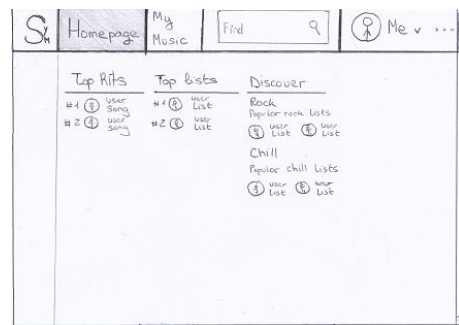 SM
Homepage
My
Music
Find
Me
Top Hits
#1 User
Song
#2 User
Song
Top Lists
#1 User
List
#2 User
List
Discover
Rock
Popular rock Lists
User
List
User
List
Chill
Popular chill Lists
User
List
User
List